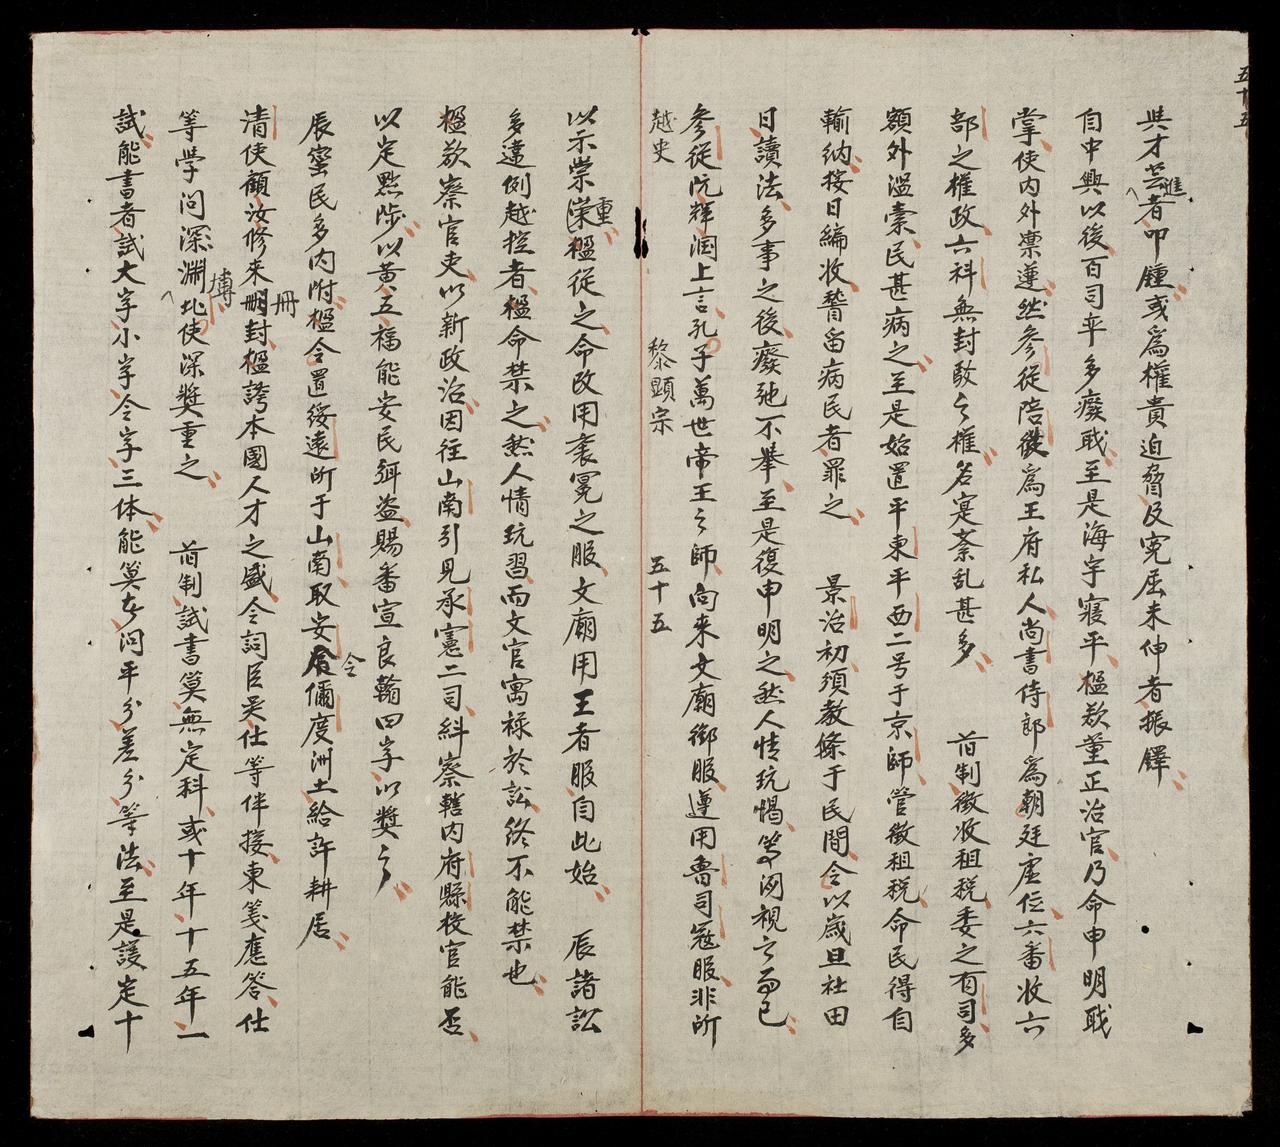 五十五
與才芸進者叩鍾或為權貴迫脅及寃屈未伸者振鐸
自中興以後百司率多癈戢至是海宇寢平楹欲董正治官乃命申明戢
掌使內外禀遵然參從陪從為王府私人尚書侍郎為朝廷虛位六番收六
部之權政六科無封駁之權名寔紊乱甚多 旹制徵收租税委之有司多
額外濫索民甚病之至是始置平東平西二号于京師管徵租税命民得自
輸納按日編收暬留病民者罪之 景治初頒教條于民間令以歲旦社田
日讀法多事之後癈弛不舉至是復申明之然人情玩愒等閑視之而已
參從阮輝潤上言孔子萬世帝王之師向來文廟御服遵用魯司寇服非所
越史 黎顕宗 五十五
以示崇重楹從之命改用衮冕之服文廟用王者服自此始 辰諸訟
多違例越控者楹命禁之然人情玩習而文官寓禄於訟終不能禁也
楹欲察官吏以新政治因往山南引見承憲二司糾察轄內府縣校官能否
以定點陟以黃五福能安民弭盗賜番宣良翰四字以奨之
辰蛮民多内附楹令置綏遠所于山南取安令儞度洲土給許耕居
清使顧汝修來冊封楹誇本國人才之盛令詞臣吳仕等伴接東箋應答仕
等學问深淵博北使深奬重之 旹制試書筭無定科或十年十五年一
試能書者試大字小字令字三体能筭者问平分差分等法至是議定十